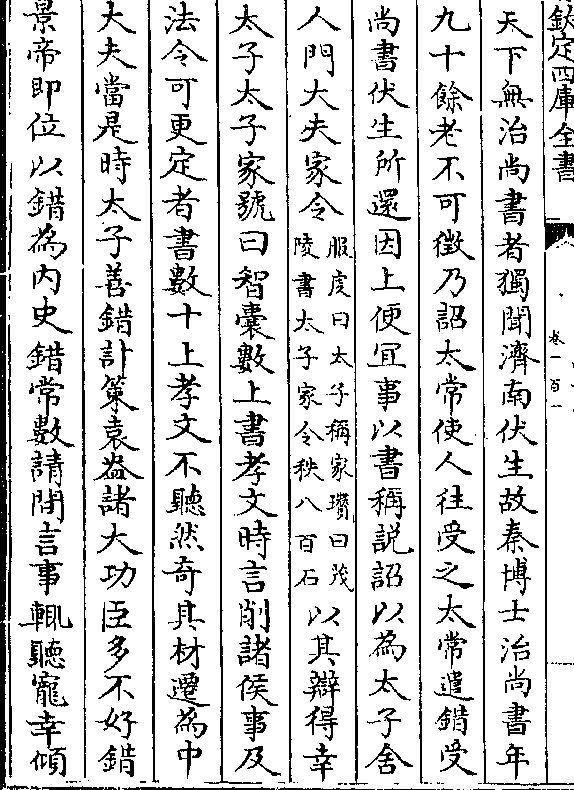 欽定四庫全書
卷一百一
天下無治尚書者獨聞濟南伏生故秦博士治尚書年
九十餘老不可徵乃詔太常使人往受之太常遣錯受
尚書伏生所還因上便宜事以書稱説詔以為太子舍
人門大夫家令服虔曰太子稱家瓚曰茂
陵書太子家令秩八百石以其辯得幸
太子太子家號曰智囊數上書孝文時言削諸侯事及
法令可更定者書數十上孝文不聽然奇其材遷為中
大夫當是時太子善錯計策袁盎諸大功臣多不好錯
景帝即位以錯為内史錯常數請間言事輒聽寵幸傾